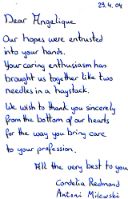 23.4.04
Dear Angelique
Our hopes were entrusted
into your hands.
Your caring enthusiasm has
brought us together like two
needles in a haystack.
We wish to thank you sincerely
from the bottom of our hearts
for the way you bring care
to your profession.
All the very best to you
Cordelia Redmond
Antoni Milewski